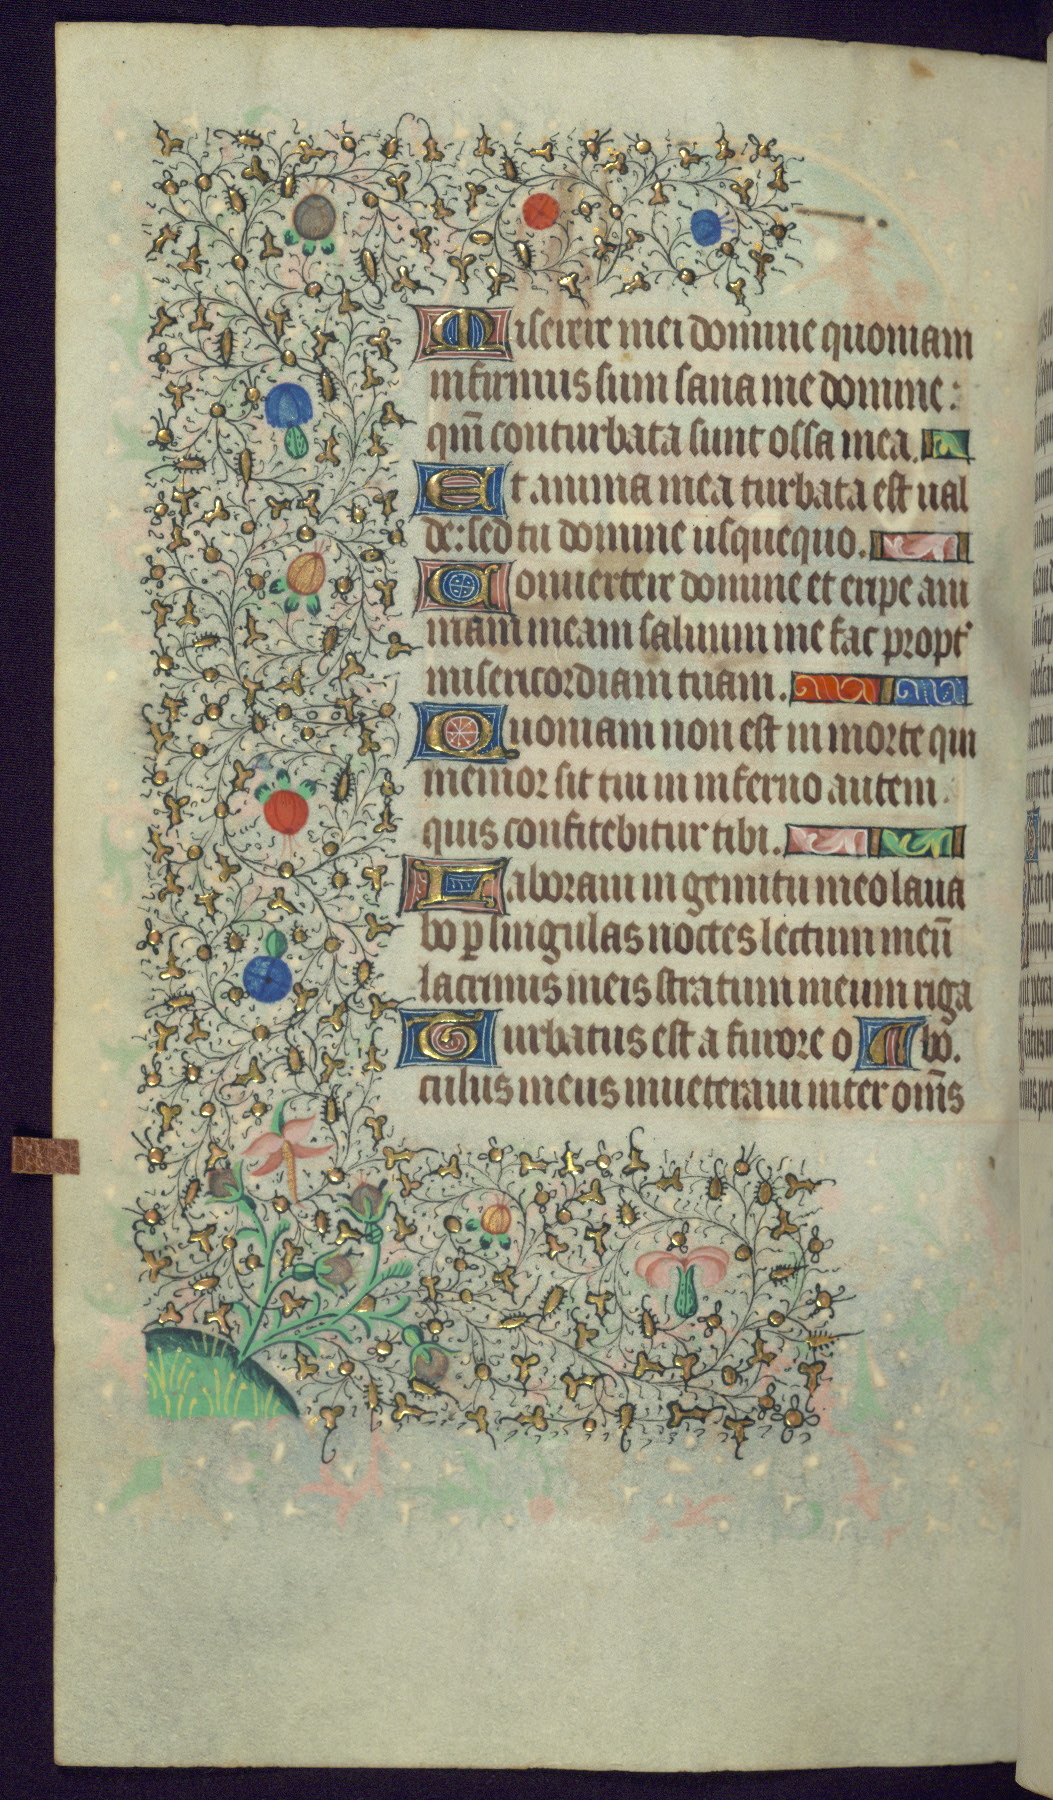 Miserere mei domine quoniam
infirmus sum sana me domine:
qm̄ conturbata sunt ossa mea.
Et anima mea turbata est ual
de: sed tu domine usquequo.
Conuertere domine et eripe ani
mam meam saluum me fac propt̛
misericordiam tuam.
Quoniam non est in morte qui
memor sit tui in inferno autem
quis confitebitur tibi.
Laboraui in gemitu meo laua
bo ꝑ singulas noctes lectum meū
lacrimis meis stratum meum riga
Turbatus est a furore o A bo.
culus meus inueteraui inter om̄s